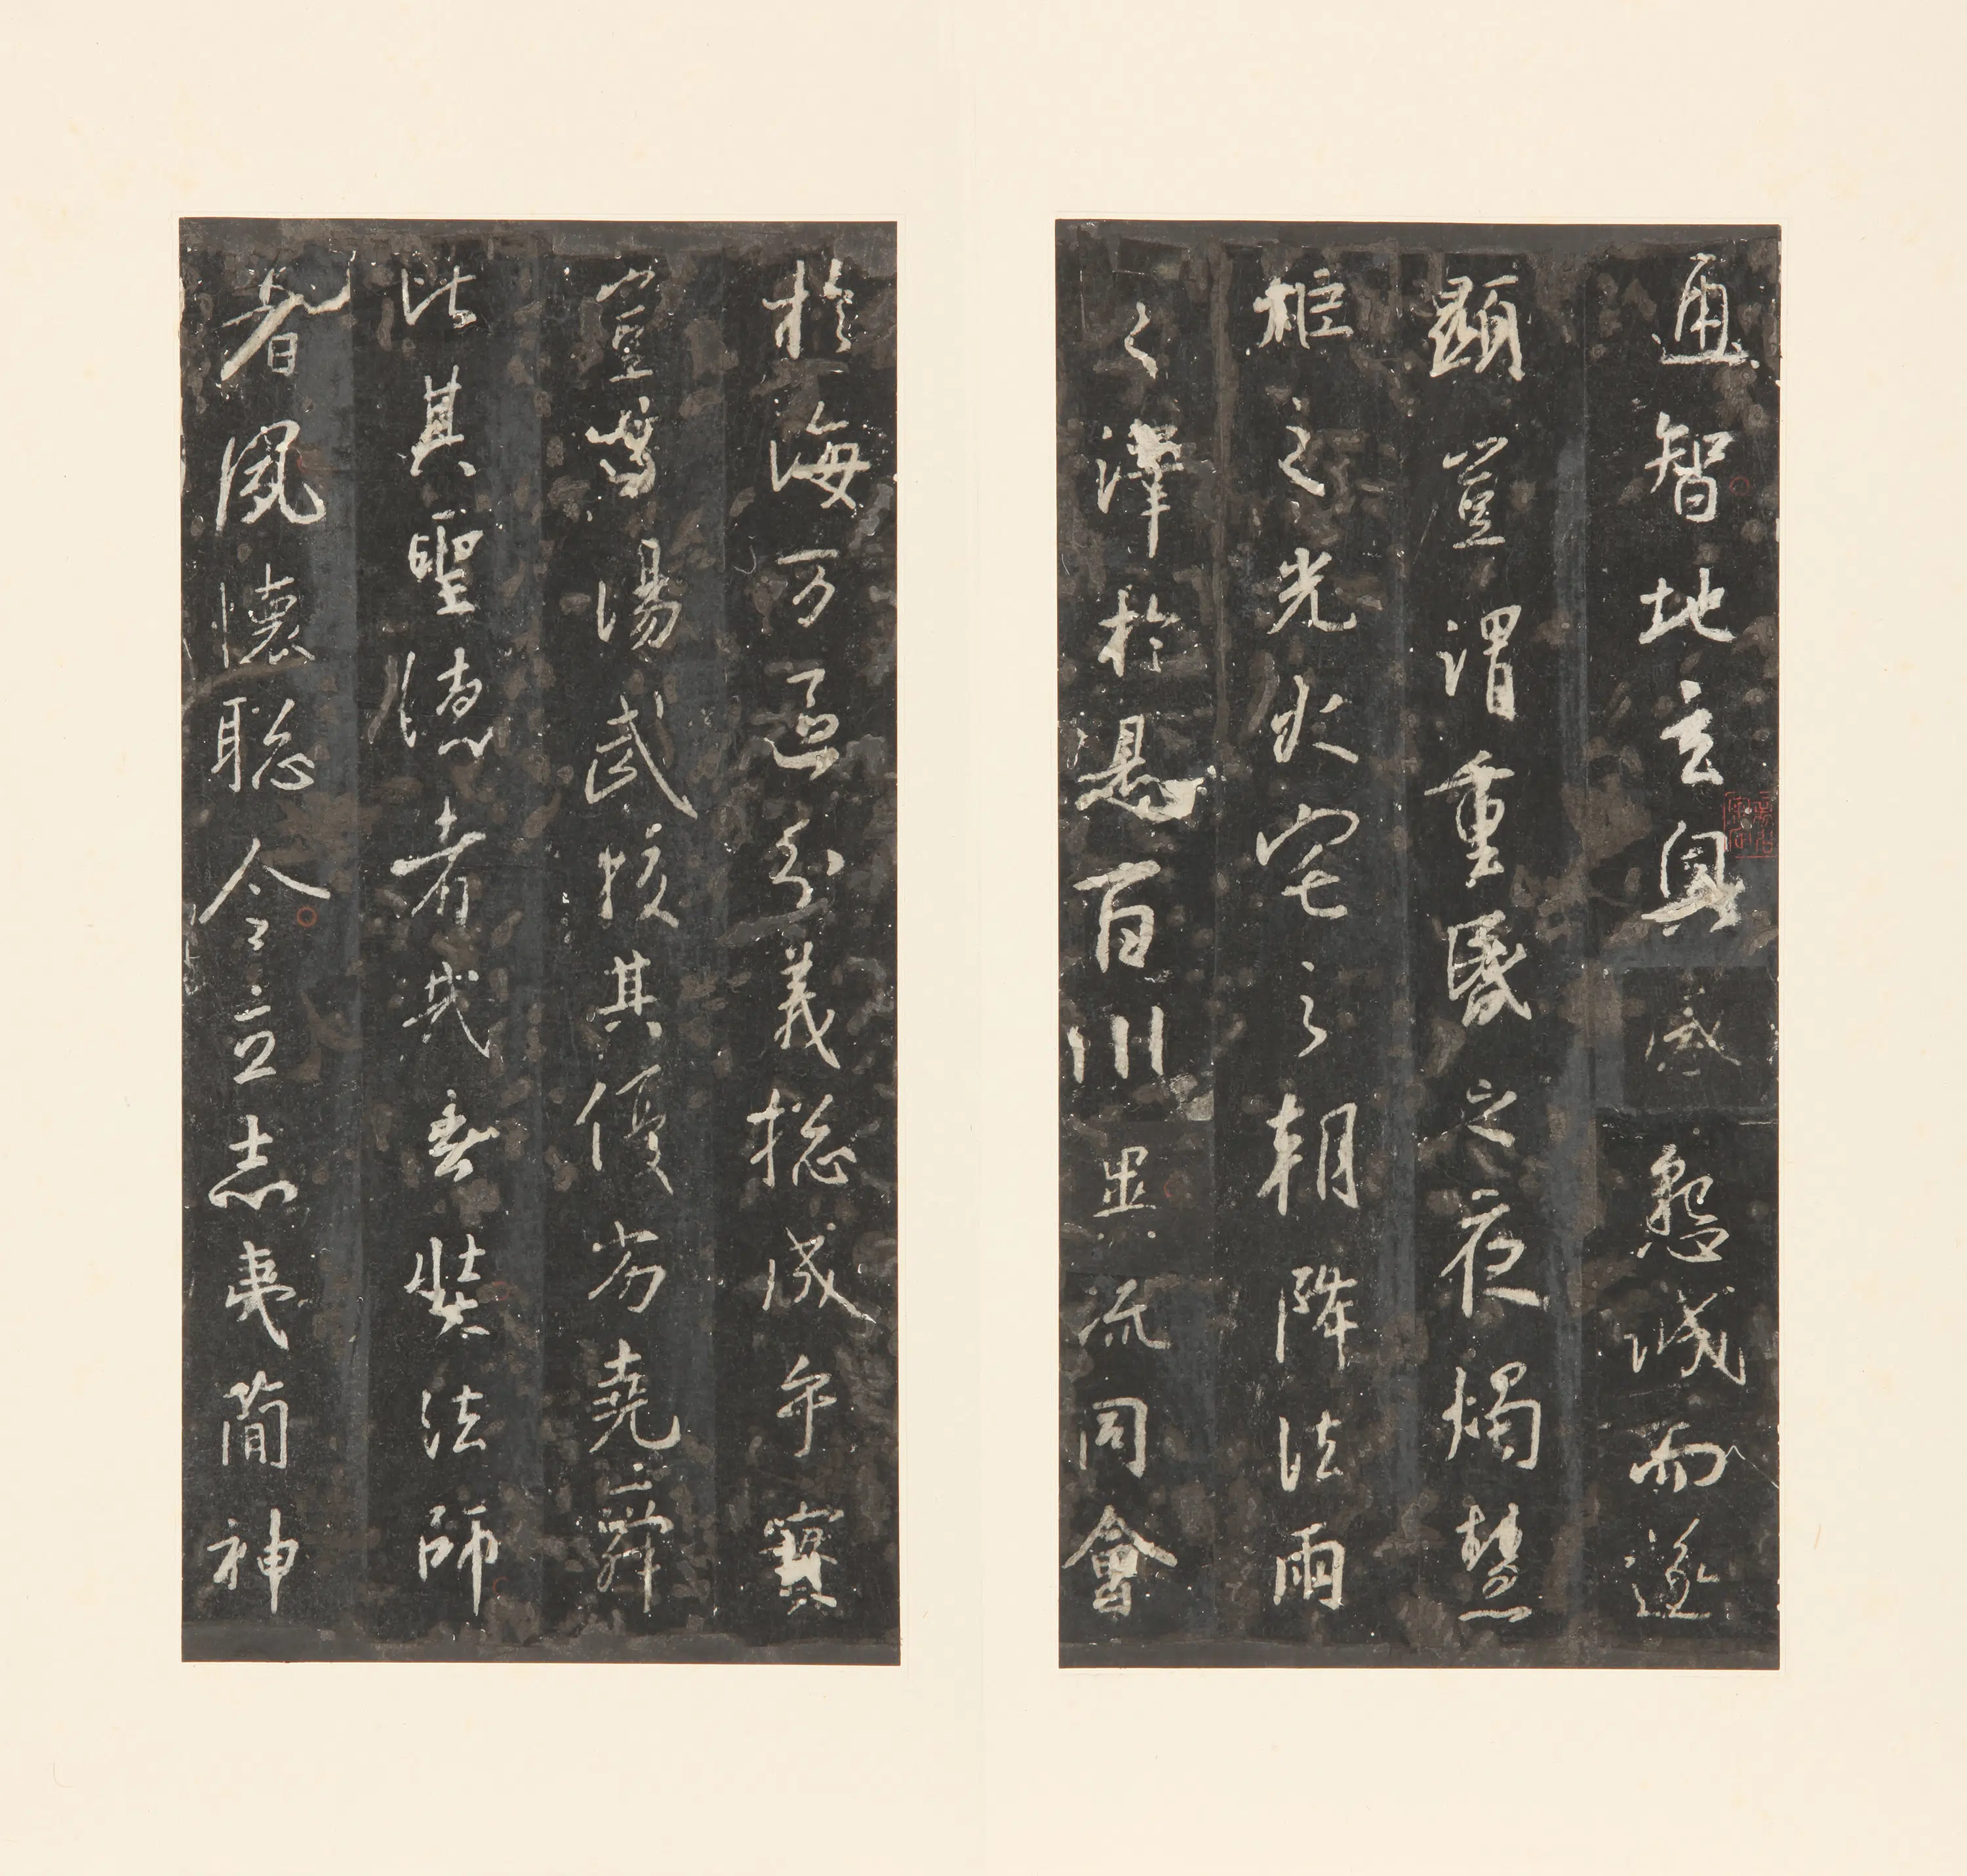 通智地玄奧感懇誠而遂
顯豈謂重昏之夜燭慧
炬之光火宅之朝降法雨
之澤於是百川異流同會
於海万區分義揔成乎實
豈與湯武挍其優劣堯舜
比其聖德者哉玄奘法師
者夙懷聰令立志夷簡神